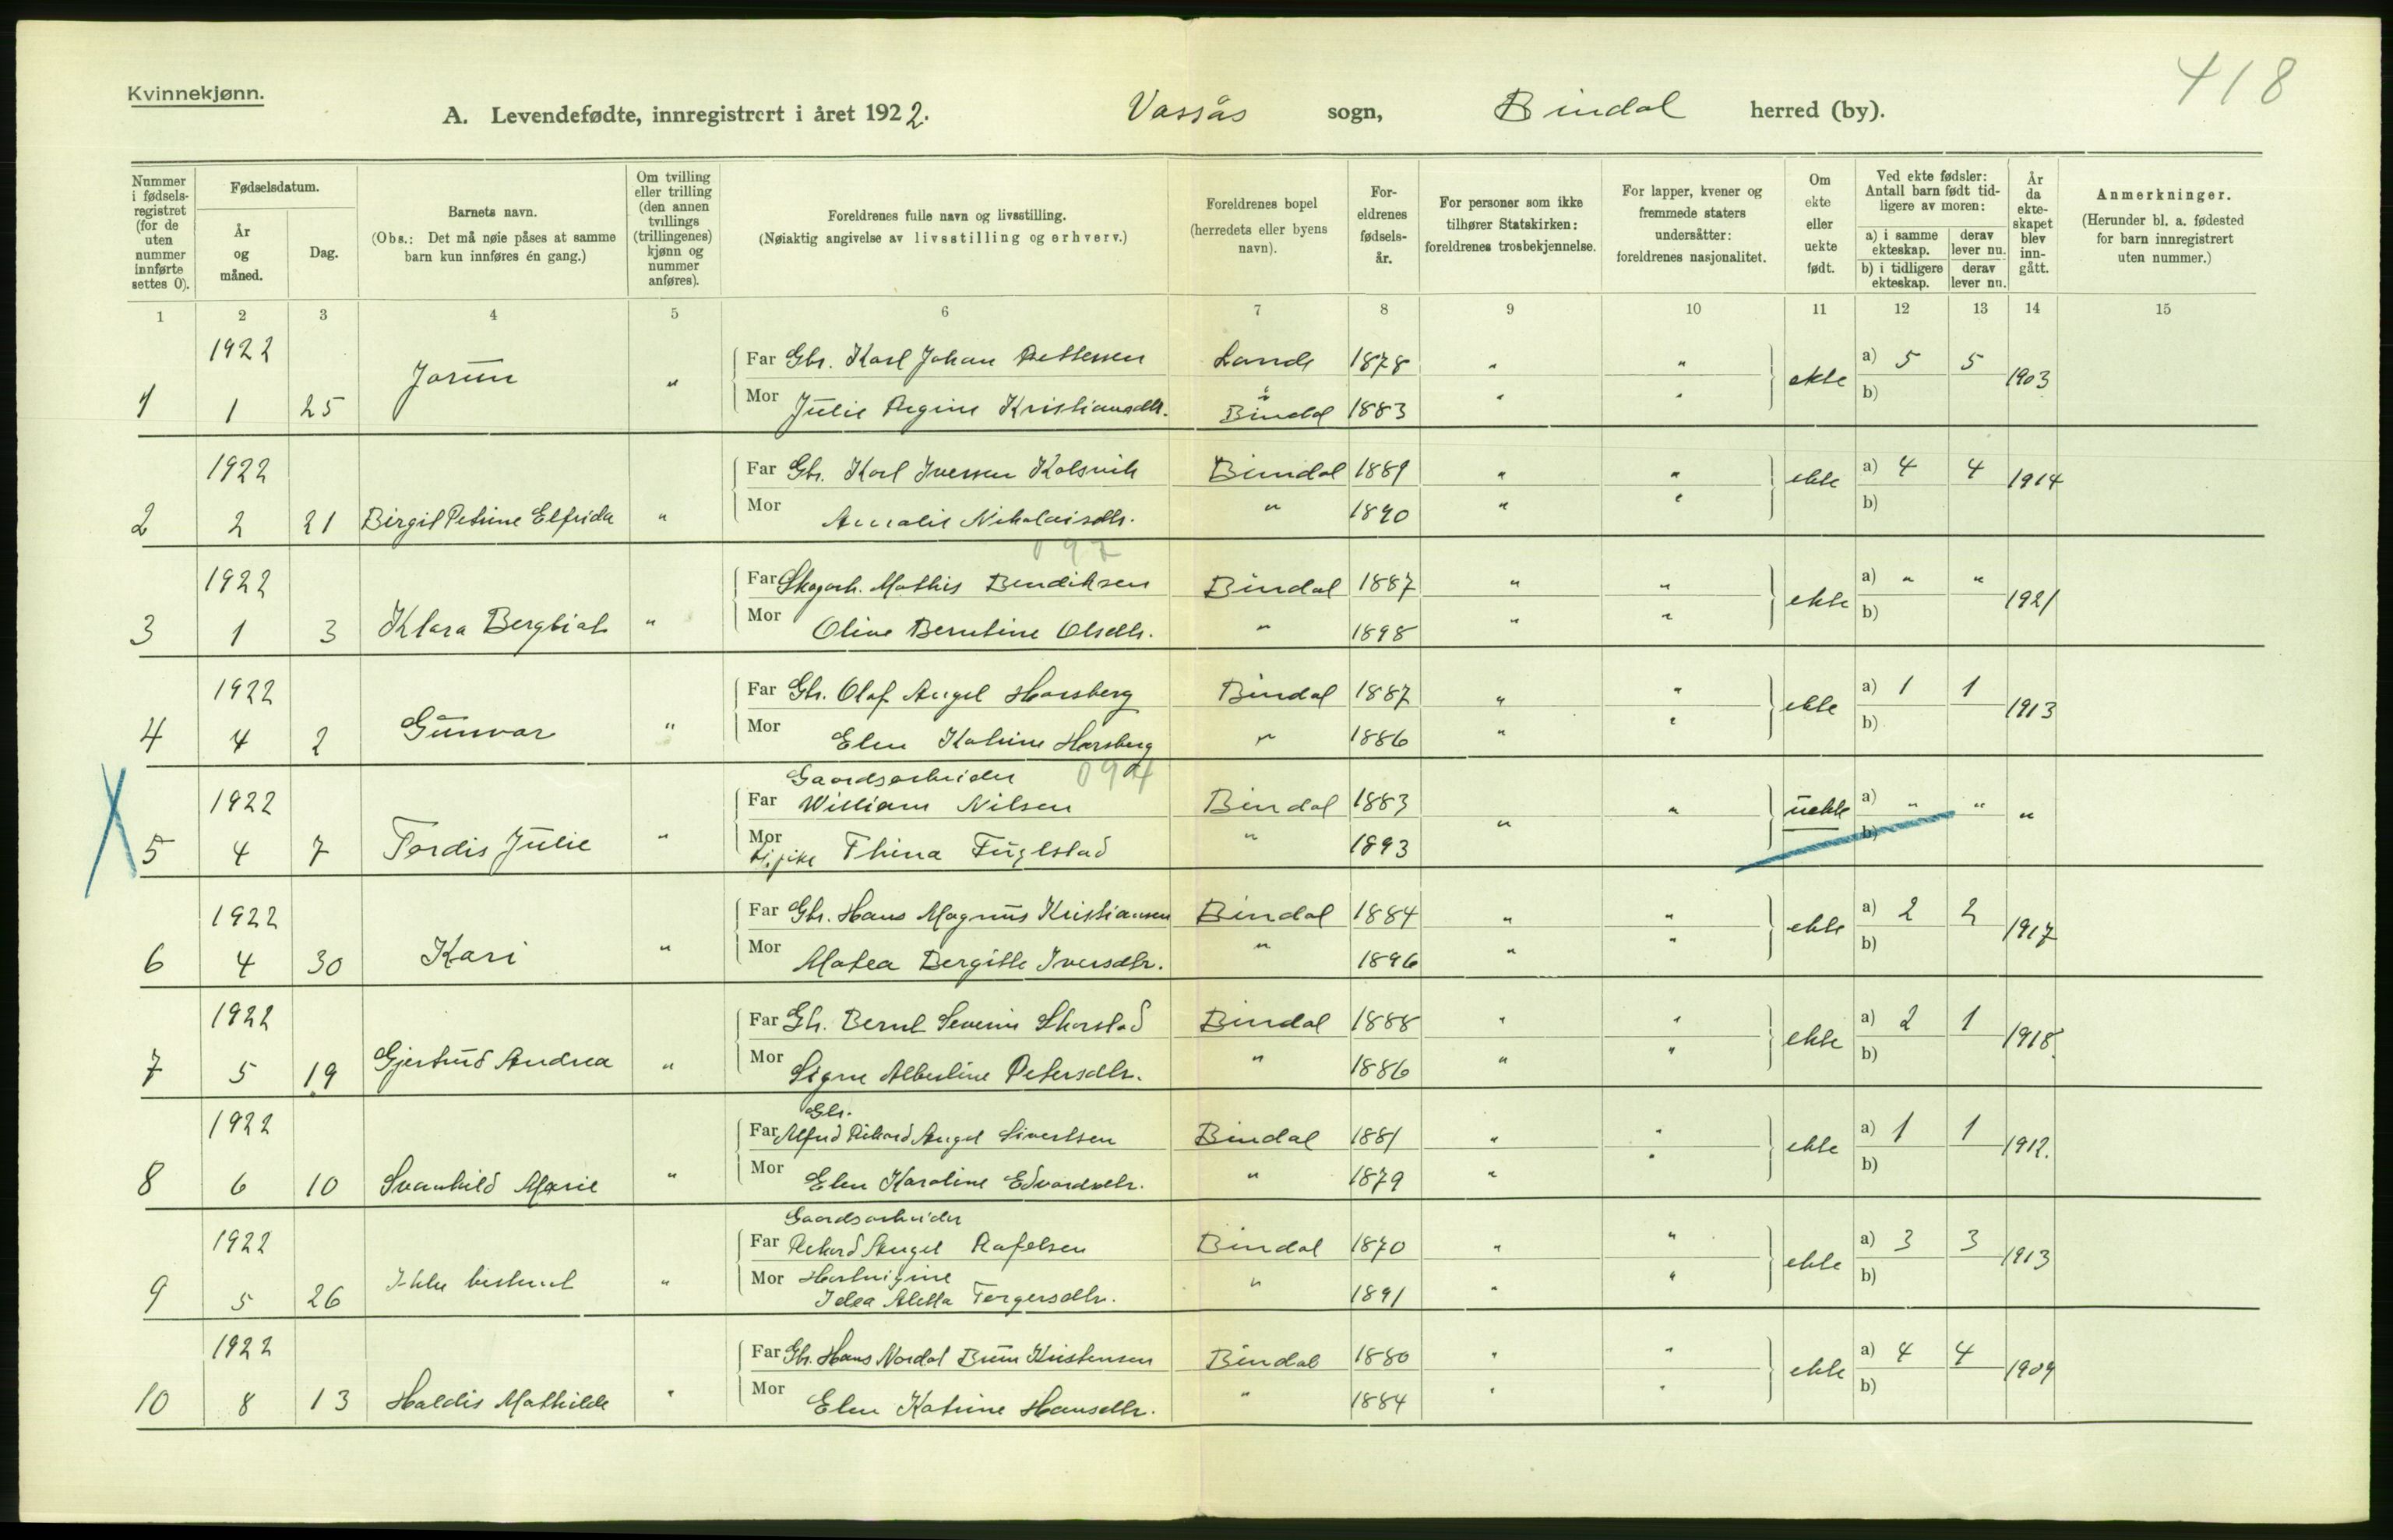 418
Kvinnekjønn.
A. Levendefødte, innregistrert i året 1922. Vassås sogn, Bindal herred (by).
Nummer i fødsels-registret (for de uten nummer innførte settes 0).
Fødselsdatum.
År og måned.
Dag.
Barnets navn.
(Obs.: Det må nøie påses at samme barn kun innføres én gang.)
Om tvilling eller trilling (den annen tvillings (trillingenes) kjønn og nummer anføres).
Foreldrenes fulle navn og livsstilling.
(Nøiaktig angivelse av livsstilling og erhverv.)
Foreldrenes bopel (herredets eller byens navn).
For-eldrenes fødsels-år.
For personer som ikke tilhører Statskirken: foreldrenes trosbekjennelse.
For lapper, kvener og fremmede staters undersåtter: foreldrenes nasjonalitet.
Om ekte eller uekte født.
Ved ekte fødsler: Antall barn født tid-ligere av moren:
a) i samme ekteskap. derav lever nu.
b) i tidligere ekteskap. derav lever nu.
År da ekte-skapet blev inn-gått.
Anmerkninger.
(Herunder bl. a. fødested for barn innregistrert uten nummer.)
1 2 3 4 5 6 7 8 9 10 11 12 13 14 15
1922 Far Gbr. Karl Johan Pettersen 1878 " " a) 5 5
1 1 25 Jorun " Mor Julie Regine Kristiansdtr. Bindal 1883 " " ekte b) 1903
1922 Far Gbr. Karl Iversen Kolsvik Bindal 1889 " " a) 4 4
2 2 21 Birgit Petrine Elfrida " Mor Amalie Nikolaisdtr. " 1890 " " ekte b) 1914
097
1922 Far Skogarb. Mathis Bendiksen Bindal 1887 " " a) " "
3 1 3 Klara Bergliot " Mor Oline Berntine Olsdtr. " 1898 " " ekte b) 1921
1922 Far Gbr. Olaf Angel Horsberg Bindal 1887 " " a) 1 1
4 4 2 Gunvor " Mor Elen Katrine Horsberg " 1886 " " ekte b) 1913
Gaardsarbeider 094
1922 Far William Nilsen Bindal 1883 a) " "
5 4 7 Tordis Julie " Mor tj.pike Thina Fuglstad " 1893 " " uekte b) "
1922 Far Gbr. Hans Magnus Kristiansen Bindal 1884 " " a) 2 2
6 4 30 Kari " Mor Matea Bergitte Iversdtr. " 1896 " " ekte b) 1917
1922 Far Gbr. Bernt Severin Skorstad Bindal 1888 " " a) 2 1
7 5 19 Gjertrud Andrea " Mor Signe Albertine Petersdtr. " 1886 " " ekte b) 1918.
Gbr.
1922 Far Alfred Rikard Angel Sivertsen Bindal 1881 " " a) 1 1
8 6 10 Svanhild Marie " Mor Elen Karoline Edvardsdtr. " 1879 " " ekte b) 1912.
Gaardsarbeider
1922 Far Rikard Angel Rafelsen Bindal 1870 " " a) 3 3
9 5 26 Ikke bestemt " Mor Hartvigine
Idea Aletta Torgersdtr. " 1891 " " ekte b) 1913
1922 Far Gbr. Hans Nordal Brun Kristensen Bindal 1880 " " a) 4 4
10 8 13 Haldis Mathilde " Mor Elen Katrine Hansdtr. " 1884 " " ekte b) 1909